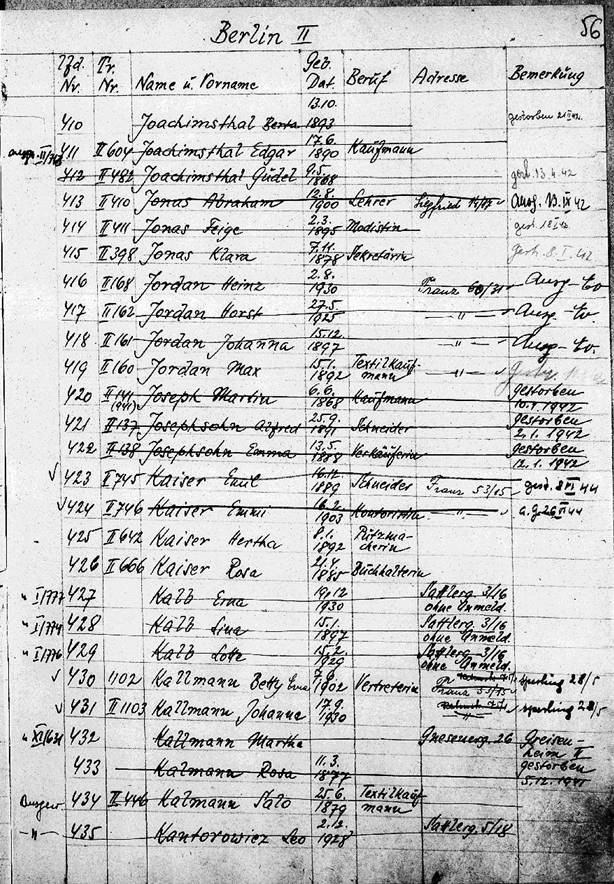 56
Berlin II
Lfd. Nr. Tr. Nr. Name u. Vorname Geb. Dat. Beruf Adresse Bemerkung
410 Joachimsthal Berta 13.10. 1893 gestorben
411 II 604 Joachimsthal Edgar 17.6. 1890 Kaufmann
412 II 482 Joachimsthal Gudel 9.5. 1868 gest. 13.4.42
413 II 410 Jonas Abraham 12.8. 1900 Lehrer Ausg. 13. IX 42
414 II 411 Jonas Feige 2.3. 1895 Modistin gest.
415 II 398 Jonas Klara 7.11. 1878 Sekretärin gest. 8. I. 42
416 II 168 Jordan Heinz 2.8. 1930 Franz 60/31 Ausg.
417 II 162 Jordan Horst 27.5. 1925 -"- Ausg.
418 II 161 Jordan Johanna 15.12. 1897 -"- Ausg.
419 II 160 Jordan Max 15.1. 1892 Textilkaufmann -"-
420 II 141 (941) Joseph Martin 6.6. 1868 Kaufmann gestorben 1942
421 II 137 Josephsohn Alfred 25.9. Schneider gestorben 2.1.1942
422 II 138 Josephsohn Emma 13.5. 1888 Verkäuferin gestorben 12.1.1942
423 II 745 Kaiser Emil 1889 Schneider Franz 53/15 gest. 44
424 II 746 Kaiser Emmi 16.2. 1903 Kontoristin -"- 26 II 44
425 II 642 Kaiser Hertha 8.1. 1892 Putzmacherin
426 II 606 Kaiser Rosa 21.4. 1885 Buchhalterin
" I/1777 427 Kalb Erna 19.12 1930 Sattlerg. 3/16 ohne Anmeld.
" I/1774 428 Kalb Lina 15.1. 1897 Sattlerg. 3/16 ohne Anmeld.
" I/1776 429 Kalb Lotte 15.2. 1929 Sattlerg. 3/16 ohne Anmeld.
430 1102 Kallmann Betty 1902 Vertreterin Franz 53/15 28/5
431 II 1103 Kallmann Johanna 17.9. 1930 -"- 28/5
" XI/631 432 Kallmann Martha Gnesenerg. 26 Greisenheim II
433 Kalmann Rosa 11.3. 1877 gestorben 5.12.1941
434 II 446 Kalmann Salo 25.6. 1879 Textilkaufmann
-"- 435 Kantorowicz Leo 2.12. 1928 Sattlerg. 5/18